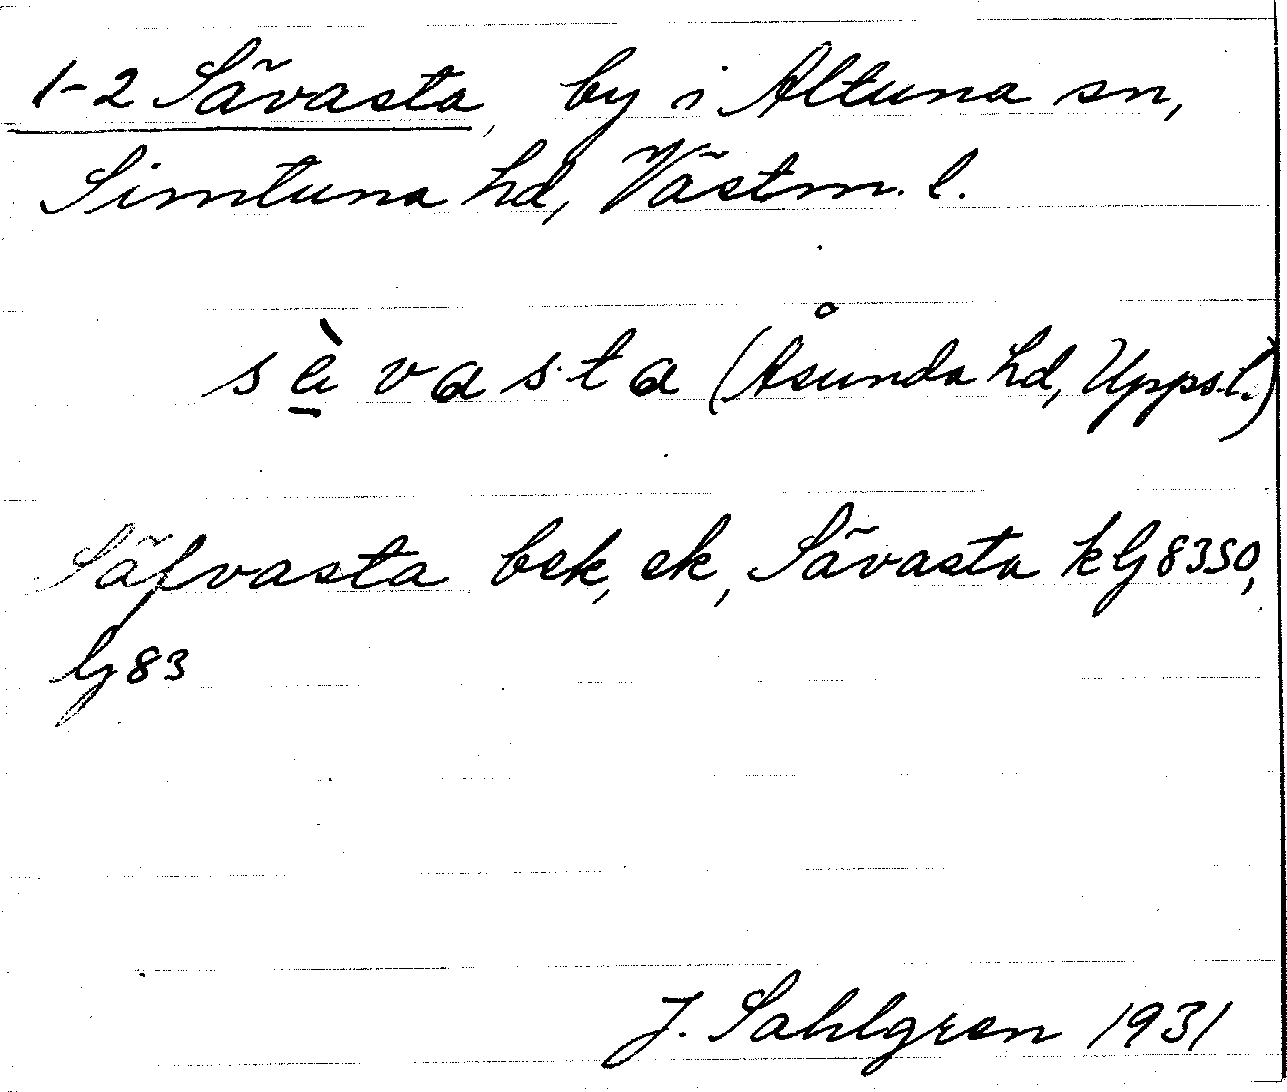 1-2 Sävasta, by i Altuna sn,
Simtuna hd, Västm. l.
sè̱vasta (Åsunda hd, Upps.l.)
Säfvasta bek, ek, Sävasta kG83SO,
G83
J. Sahlgren 1931